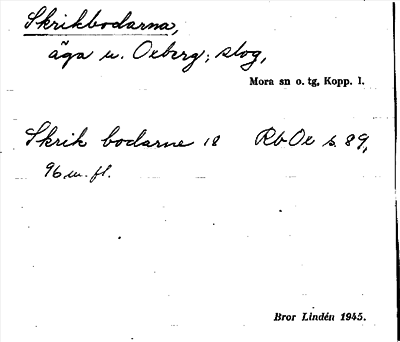 Skrikbodarna,
äga u. Oxberg; skog,
Mora sn o. tg, Kopp. l.
Skrik bodarne 18 RbOx s. 89,
96 m. fl.
Bror Lindén 1945.